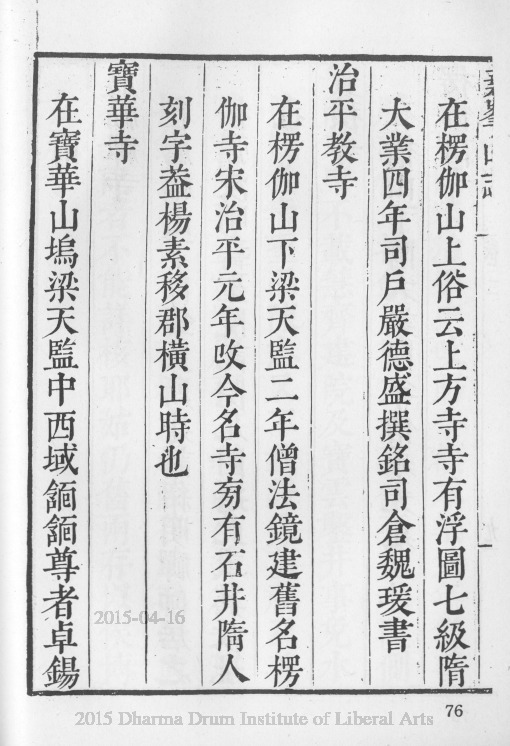 在楞伽山上俗云上方寺寺有浮圖七級隋
大業四年司戶嚴德盛撰銘司倉魏瑗書
治平教寺
在楞伽山下梁天監二年僧法鏡建舊名楞
伽寺宋治平元年改今名寺旁有石井隋人
刻字葢楊素移郡橫山時也
寶華寺
在寶華山塢梁天監中西域𩠐𩠐尊者卓錫
2015-04-16
76
2015 Dharma Drum Institute of Liberal Arts